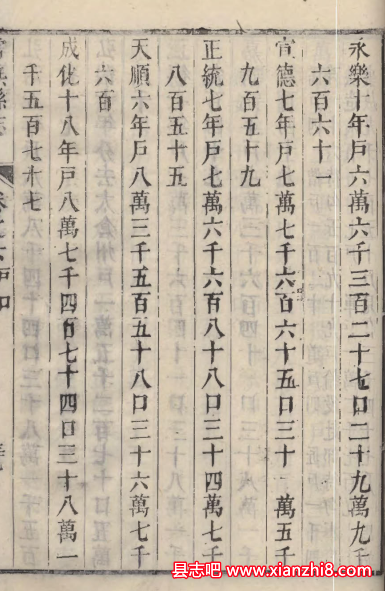 永樂十年戸六萬六千三百二十七口二十九萬九千
六百六十一
宣德七年戸七萬七千六百六十五口三十一萬五千
九百五十九
正統七年戸七萬六千六百八十八口三十四萬七千
八百五十五
天順六年戸八萬三千五百五十八口三十六萬七千
六百
成化十八年戸八萬七千四百七十四口三十八萬一
千五百七十七
常熟縣志
卷之六 戸口
县志吧 www.xianzhi8.com